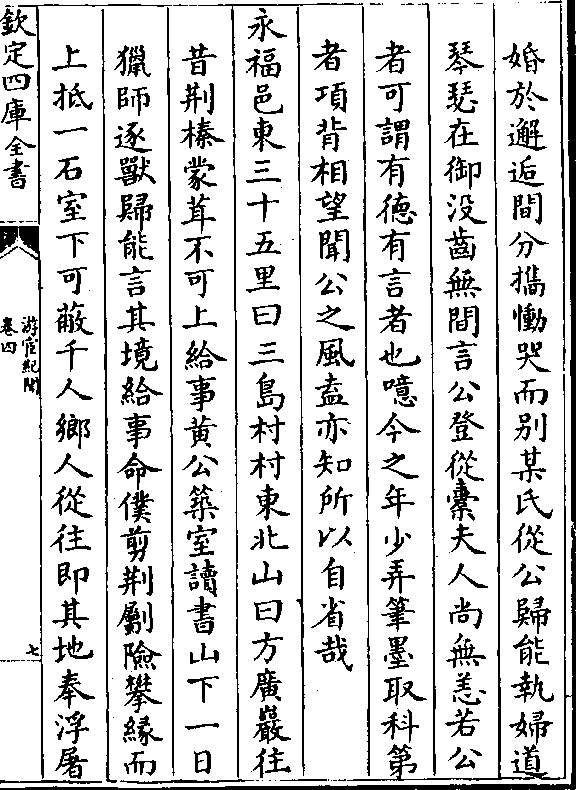 婚於邂逅間分攜慟哭而別某氏從公歸能執婦道
琴瑟在御没齒無間言公登從橐夫人尚無恙若公
者可謂有德有言者也噫今之年少弄筆墨取科第
者項背相望聞公之風盍亦知所以自省哉
永福邑東三十五里曰三島村村東北山曰方廣巖往
昔荆榛蒙茸不可上給事黄公築室讀書山下一日
獵師逐獸歸能言其境給事命僕剪荆劚險攀緣而
上抵一石室下可蔽千人鄉人從往即其地奉浮屠
欽定四庫全書
游宦紀聞
卷四
七